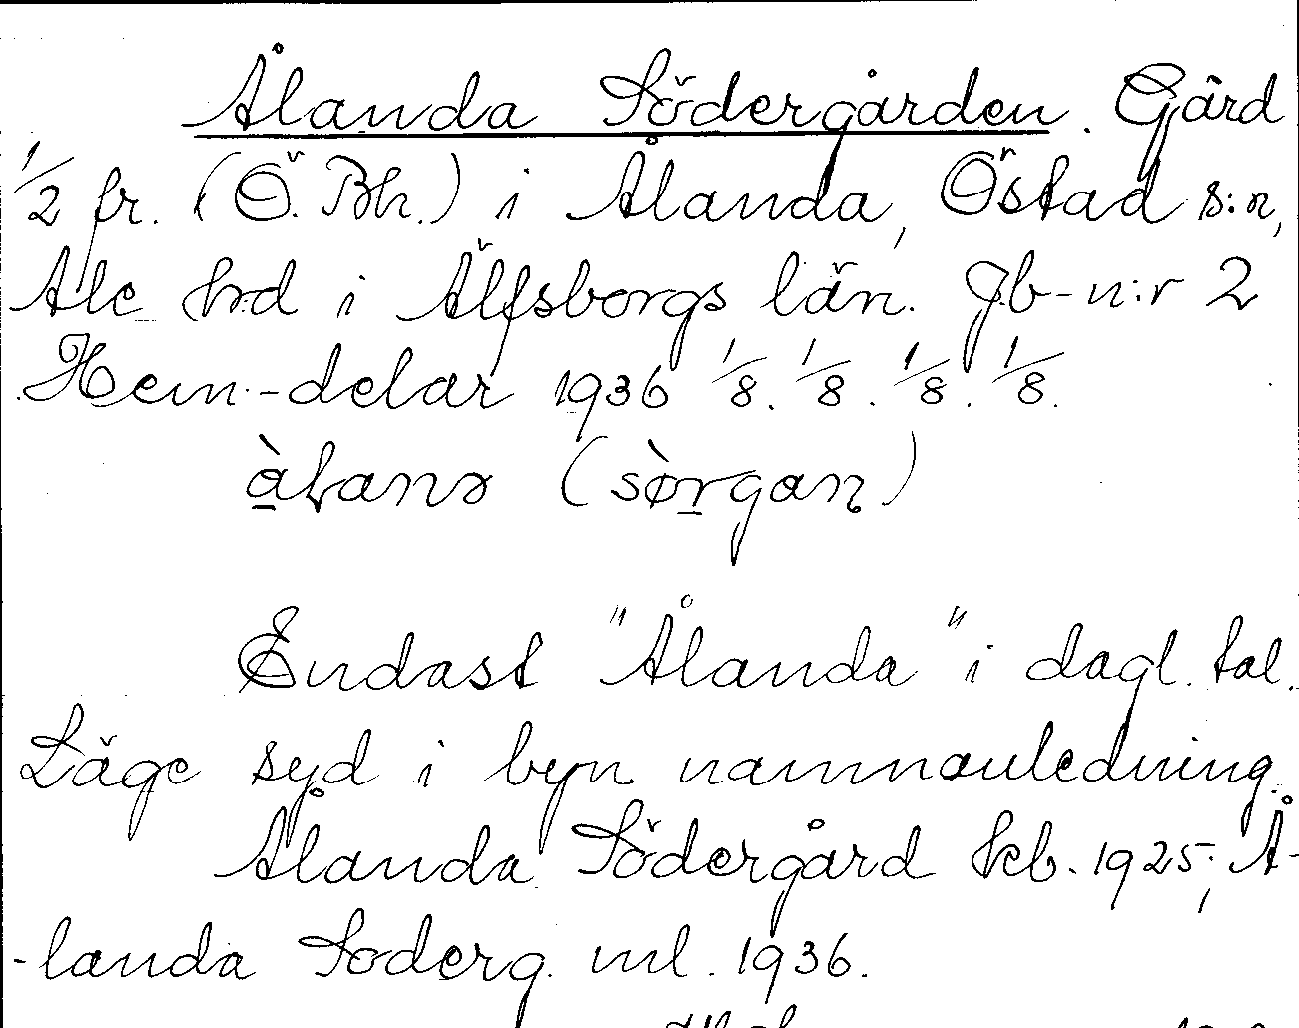 Ålanda Södergården. Gård
1/2 fr. (Ö. Bh.) i Ålanda, Östad s:n,
Ale hrd i Älfsborgs län. Jb-n:r 2
Hem.-delar 1936 1/8. 1/8. 1/8. 1/8.
(sòrgan)
Endast "Ålanda" i dagl. tal.
Läge syd i byn namnanledning.
Ålanda Södergård kb. 1925; Å-
-landa Söderg. ml. 1936.